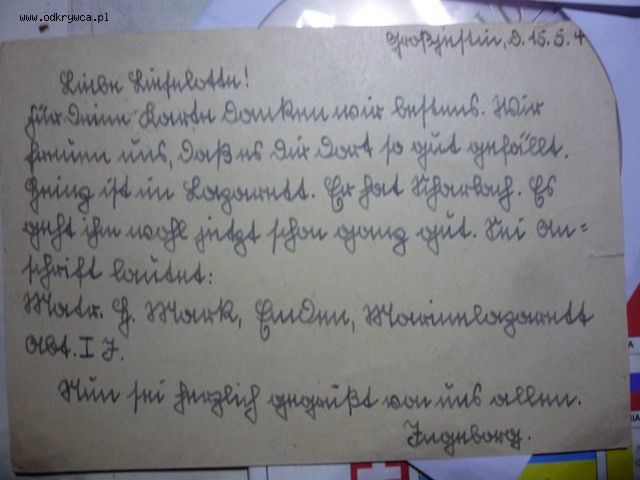 www.odkrywca.pl
Großjestin, d. 15. 5. 4
Liebe Lieselotte!
Für Deine Karte danken wir bestens. Wir
freuen uns, daß es Dir dort so gut gefällt.
Heinz ist im Lazarett. Er hat Scharlach. Es
geht ihm wohl jetzt schon ganz gut. Sei An=
schrift lautet:
Matr. H. Mark, Emden, Marinelazarett
Abt. I J.
Nun sei herzlich gegrüßt von uns allen.
Ingeborg.